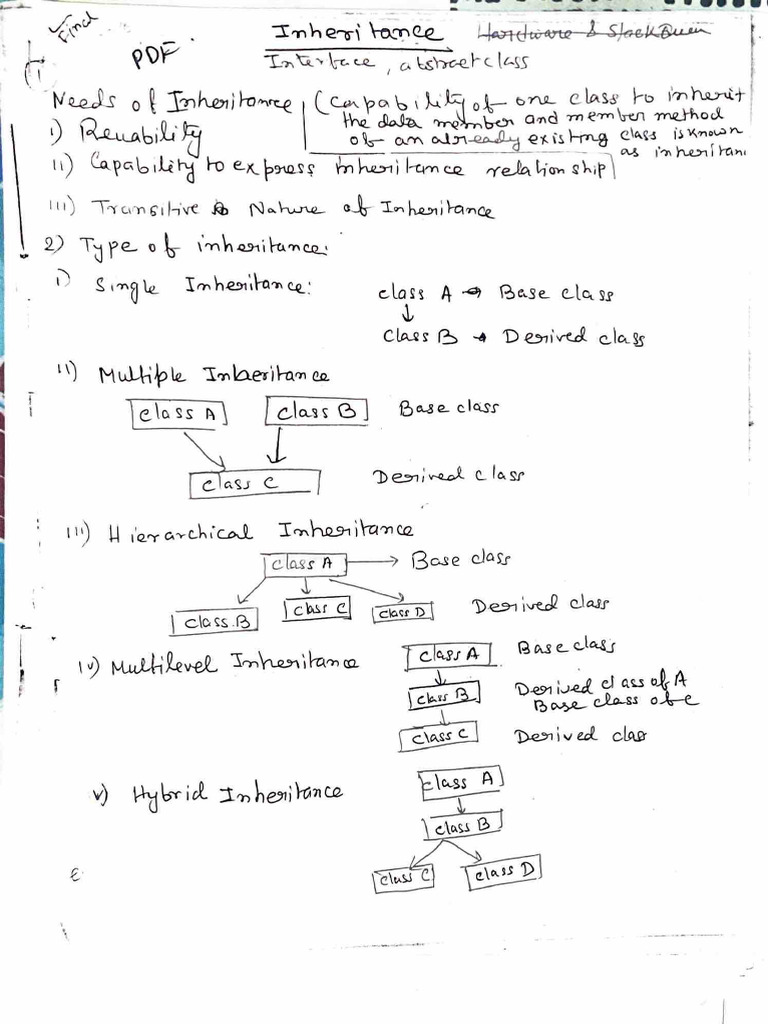 Find
PDF
Inheritance
Hardware &
Interface, abstract class
Needs of Inheritance (Capability of one class to inherit
the data member and member method
of an already existing class is known
as inheritan
i) Reuability
ii) Capability to express inheritance relationship
iii) Transitive Nature of Inheritance
2) Type of inheritance:
i) Single Inheritance:
class A → Base class
↓
Class B → Derived class
ii) Multiple Inheritance
class A class B Base class
class C Derived class
iii) Hierarchical Inheritance
class A → Base class
class.B class C class D Derived class
iv) Multilevel Inheritance
class A Base class
class B Derived class of A
Base class of c
class C Derived clas
v) Hybrid Inheritance
class A
class B
class C class D